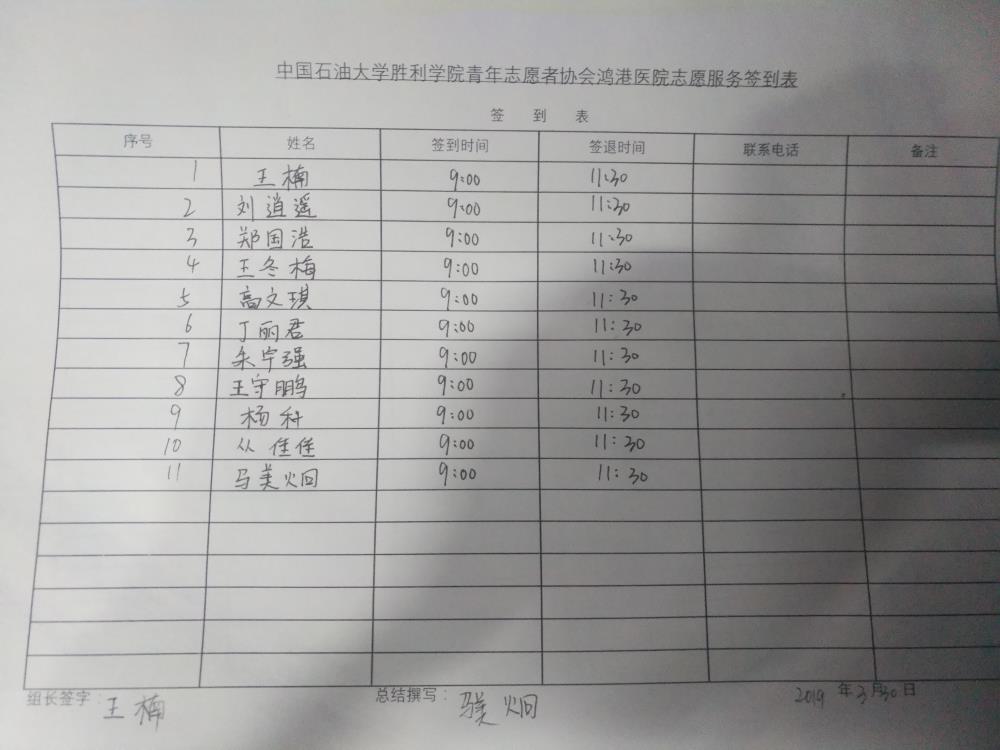 中国石油大学胜利学院青年志愿者协会鸿港医院志愿服务签到表
签 到 表
序号 姓名 签到时间 签退时间 联系电话 备注
1 王楠 9:00 11:30
2 刘逍遥 9:00 11:30
3 郑国浩 9:00 11:30
4 王冬梅 9:00 11:30
5 高文琪 9:00 11:30
6 丁丽君 9:00 11:30
7 9:00 11:30
8 王守鹏 9:00 11:30
9 杨科 9:00 11:30
10 从佳佳 9:00 11:30
11 马美炯 9:00 11:30
组长签字:王楠 总结撰写:马美炯 2019 年 3 月 30 日